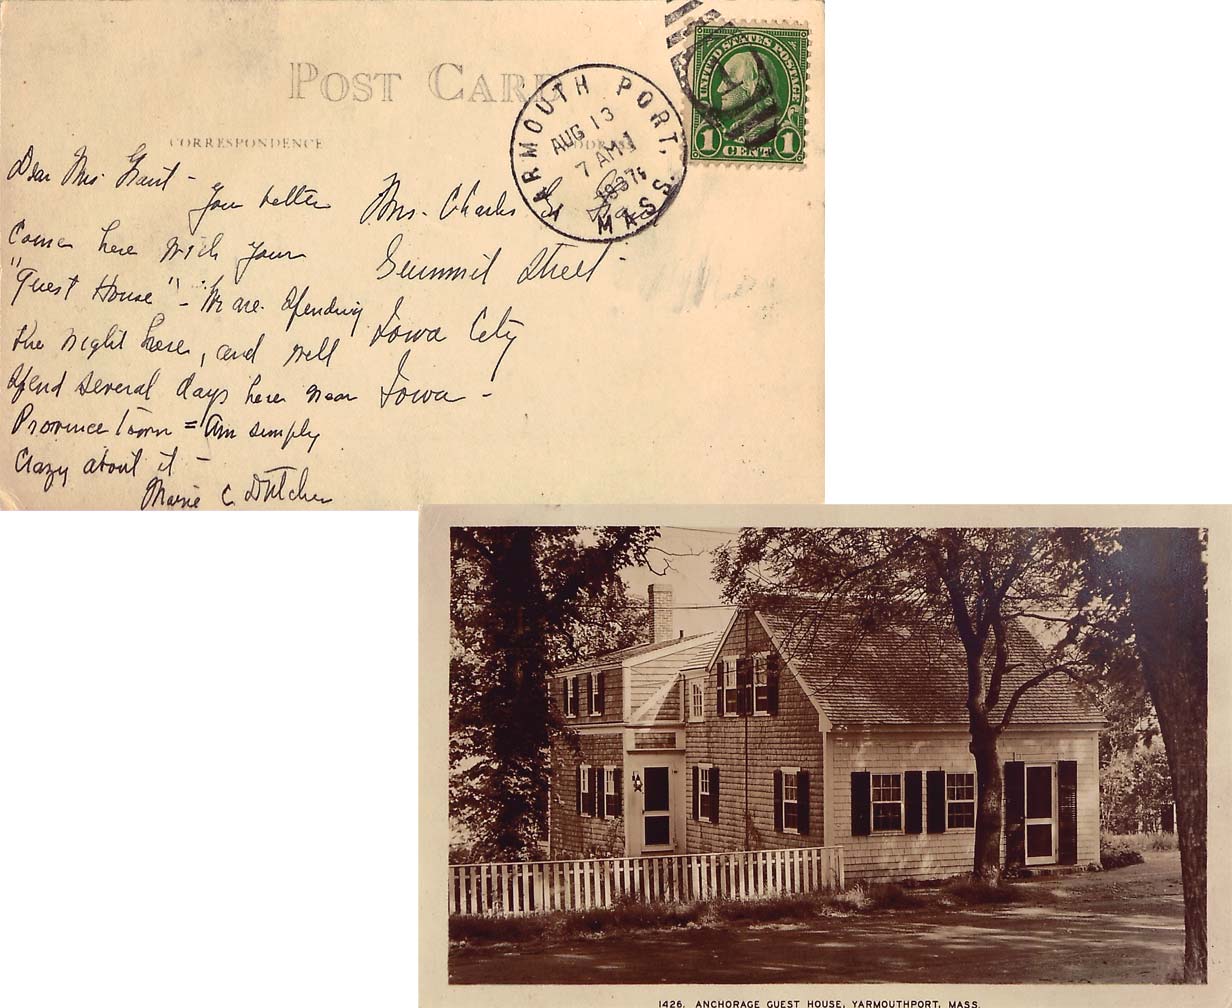 POST CARD
CORRESPONDENCE
Dear Mrs. Grant -
You better
come here with your
"Guest House" - We are spending
the night here, and will
spend several days here near
Province Town = Am simply
Crazy about it -
Marie C. Dutcher
Mrs. Charles
Summit Street -
Iowa City
Iowa -
YARMOUTH PORT, MASS.
AUG 13
7 AM
1937
UNITED STATES POSTAGE
1 CENT 1
1426. ANCHORAGE GUEST HOUSE, YARMOUTHPORT, MASS.